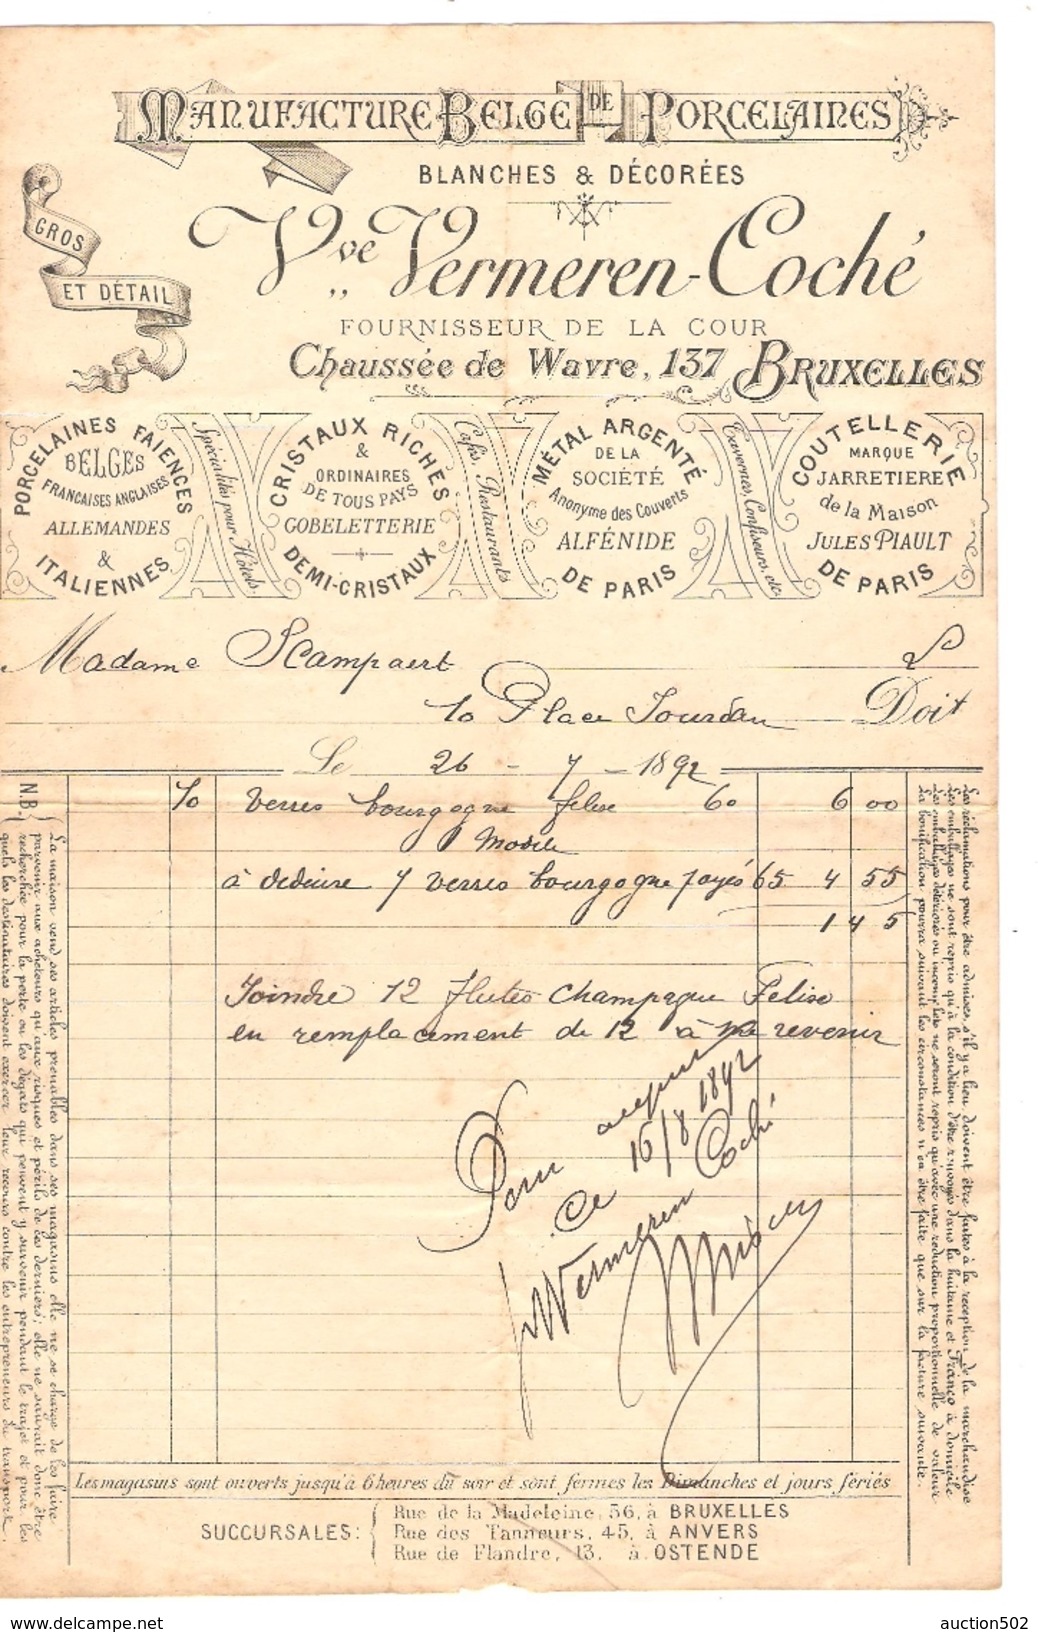 MANUFACTURE BELGE DE PORCELAINES
BLANCHES & DÉCORÉES
GROS
ET DÉTAIL
Vve Vermeren-Coché
FOURNISSEUR DE LA COUR
Chaussée de Wavre, 137 BRUXELLES
PORCELAINES FAIENCES
BELGES
FRANCAISES ANGLAISES
ALLEMANDES
&
ITALIENNES
Spécialités pour Hôtels
CRISTAUX RICHES
&
ORDINAIRES
DE TOUS PAYS
GOBELETTERIE
DEMI-CRISTAUX
Cafés, Restaurants
MÉTAL ARGENTÉ
DE LA
SOCIÉTÉ
Anonyme des Couverts
ALFÉNIDE
DE PARIS
Tavernes, Confiseurs, etc
COUTELLERIE
MARQUE
JARRETIERE
de la Maison
JULES PIAULT
DE PARIS
Madame
10 Place Jourdan Doit
Le 26 - 7 - 1892
10 verres bourgogne felise 60 6 00
Modele
à deduire 7 verres bourgogne payés 65 4 55
1 45
Joindre 12 flutes champagne Felise
en remplacement de 12 à revenir
Pour acquit
Ce 16/8 1892
Vermeren Coché
N.B. La maison vend ses articles prenables dans ses magasins elle ne se charge de les faire
parvenir aux acheteurs qu'aux risques et périls de ces derniers; elle ne saurait donc être
recherchée pour la perte ou les dégats qui peuvent y survenir pendant le trajet et pour les
quels les destinataires doivent exercer leur recours contre les entrepreneurs du transport.
Les réclamations pour être admises, s'il y a lieu, doivent être faites à la reception de la marchandise
Les emballages ne sont repris qu'à la condition d'être renvoyés dans la huitaine et Franco à domicile
Les emballages détériorés ou incomplets ne seront repris qu'avec une reduction proportionnelle de valeur
La bonification pourra suivant les circonstances n'en être faite que sur la facture suivante.
Les magasins sont ouverts jusqu'à 6 heures du soir et sont fermés les Dimanches et jours fériés
SUCCURSALES:
Rue de la Madeleine, 56, à BRUXELLES
Rue des Tanneurs, 45, à ANVERS
Rue de Flandre, 13, à OSTENDE
auction502